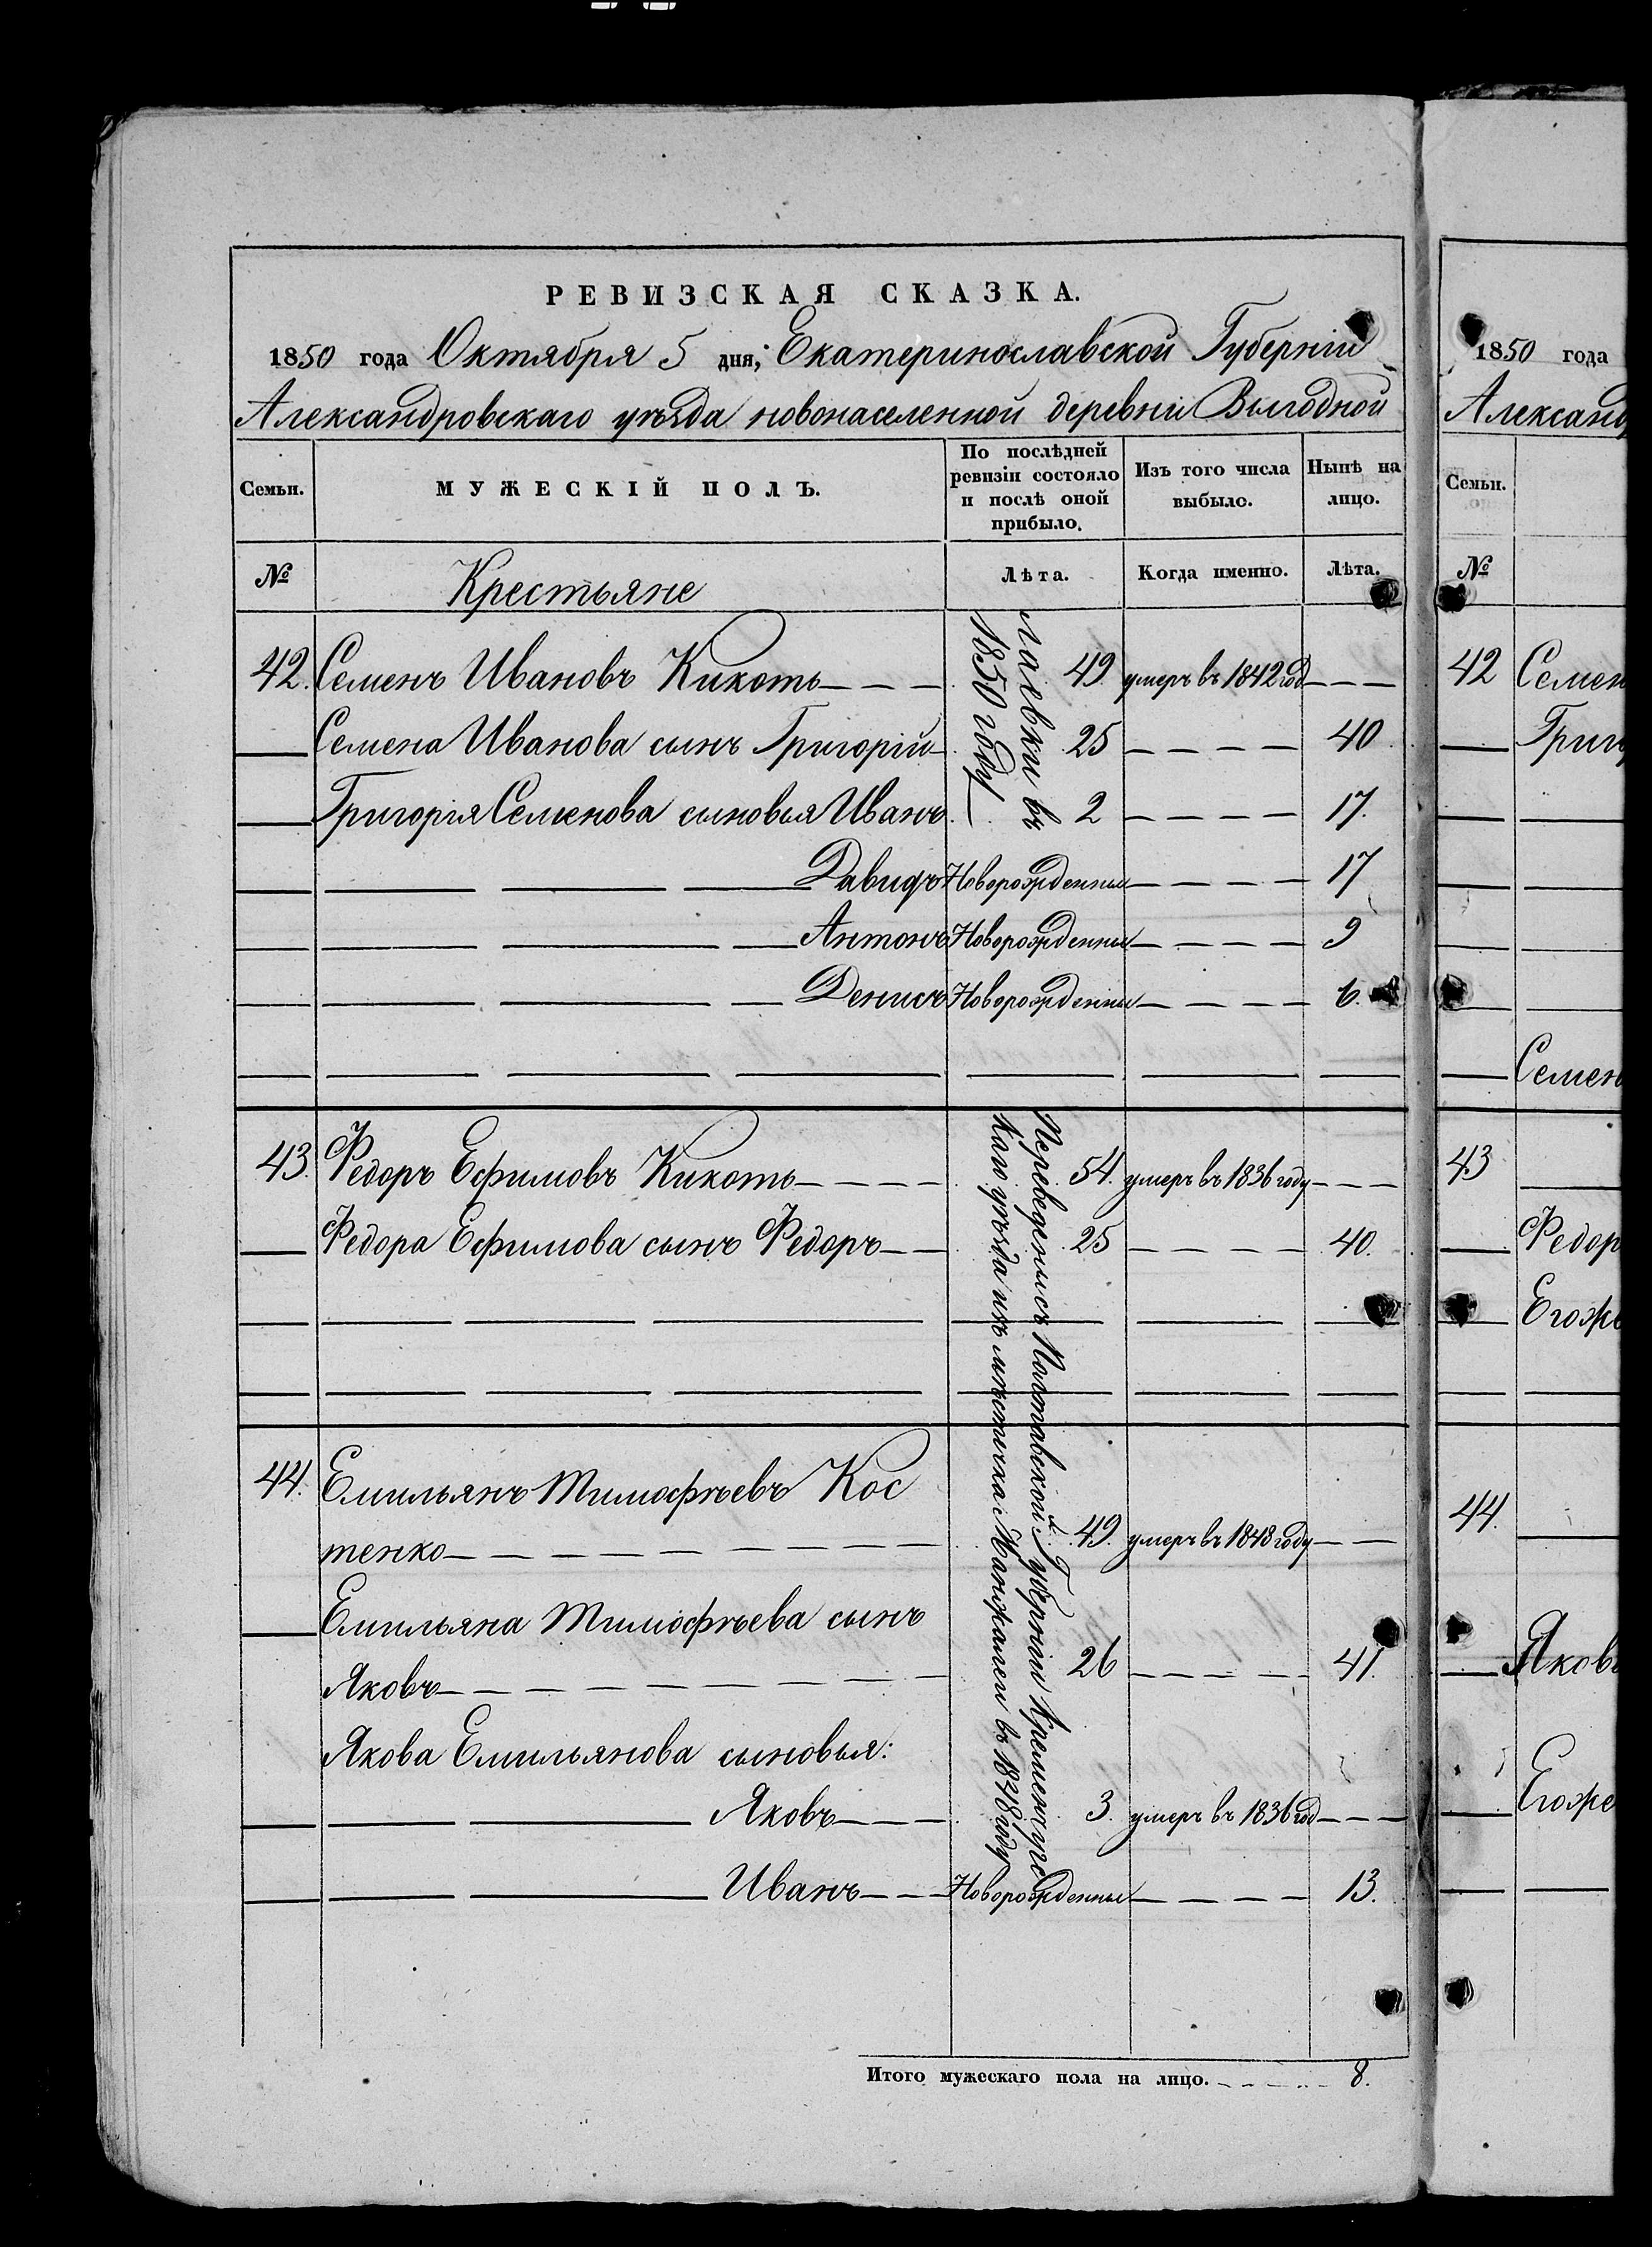 РЕВИЗСКАЯ СКАЗКА.
1850 года Октября 5 дня; Екатеринославской Губерніи
Александровскаго уѣзда новонаселенной деревни Выгодной
Семьи.
МУЖЕСКІЙ ПОЛЪ.
По послѣдней ревизіи состояло и послѣ оной прибыло.
Изъ того числа выбыло.
Нынѣ на лицо.
№ Крестьяне Лѣта. Когда именно. Лѣта.
въ
1850 году
42. Семенъ Ивановъ Кикоть 49. умеръ въ 1842 год
Семена Иванова сынъ Григорій 25 40
Григорія Семенова сыновья Иванъ 2 17.
Давидъ Новорожденный 17
Антонъ Новорожденный 9
Денисъ Новорожденный 6.
Переведены съ Полтавской Губерніи Кременчугс
каго уѣзда изъ мѣстечка Манжалеи въ 1848 году
43. Федоръ Ефимовъ Кикоть 54. умеръ въ 1836 году
Федора Ефимова сынъ Федоръ 25 40.
44. Емильянъ Тимофѣевъ Кос
тенко 49. умеръ въ 1848 году
Емильяна Тимофѣева сынъ
Яковъ 26 41.
Якова Емильянова сыновья:
Яковъ 3. умеръ въ 1836 год
Иванъ Новорожденный 13.
Итого мужескаго пола на лицо. 8.
1850 года
Александ
Семьи.
№
42 Семен
Григ
Семен
43
Федор
Егоже
44.
Яковъ
Егоже